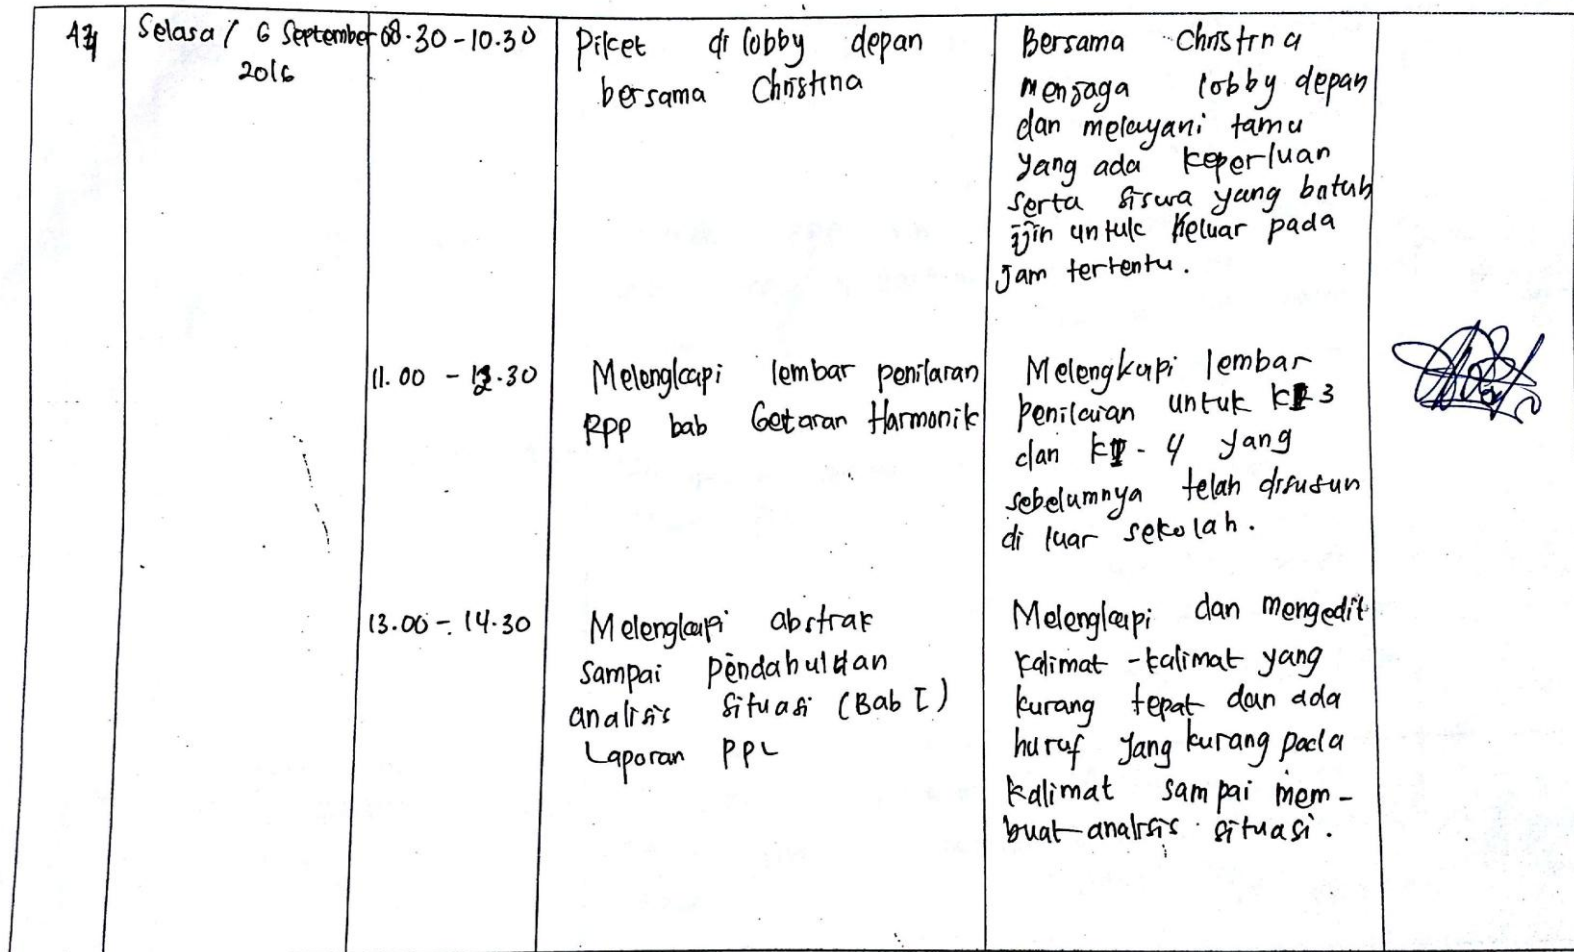 Selasa / 6 September
2016
08.30-10.30
Piket di lobby depan
bersama Christina
Bersama Christina
menjaga lobby depan
dan melayani tamu
yang ada keperluan
serta siswa yang butuh
ijin untuk keluar pada
jam tertentu.
11.00 - 12.30
Melengkapi lembar penilaian
RPP bab Getaran Harmonik
Melengkapi lembar
penilaian untuk KI 3
dan KI - 4 yang
sebelumnya telah disusun
di luar sekolah.
13.00 - 14.30
Melengkapi abstrak
sampai pendahuluan
analisis situasi (Bab I)
Laporan PPL
Melengkapi dan mengedit
kalimat-kalimat yang
kurang tepat dan ada
huruf yang kurang pada
kalimat sampai mem-
buat analisis situasi.